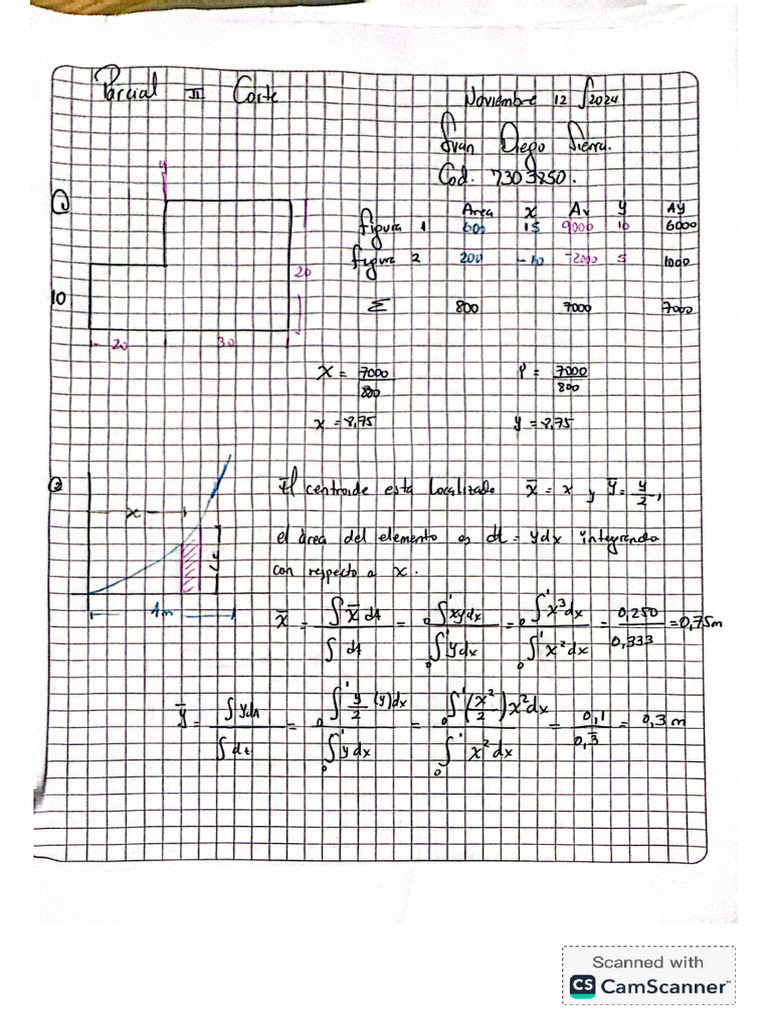 Parcial II Corte
Noviembre 12 / 2024
Ivan Diego Sierra.
Cod. 7303850.
1
y
Area x Ax y Ay
figura 1 600 15 9000 10 6000
figura 2 200 -10 -2000 5 1000
20
10
Σ 800 7000 7000
20 30
x = 7000/800 Y = 7000/800
x = 8,75 y = 8,75
2
El centroide esta localizado x̄ = x y ȳ = y/2,
x
el área del elemento es dA = ydx integrando
con respecto a x.
1m
x̄ = ∫x̄ dA / ∫dA = ₀∫¹ xy dx / ₀∫¹ y dx = ₀∫¹ x³ dx / ₀∫¹ x² dx = 0,250 / 0,333 = 0,75m
ȳ = ∫ydA / ∫dA = ₀∫¹ y/2 (y)dx / ₀∫¹ y dx = ₀∫¹ (x²/2) x² dx / ₀∫¹ x² dx = 0,1 / 0,3̄ = 0,3 m
Scanned with
CS CamScanner™